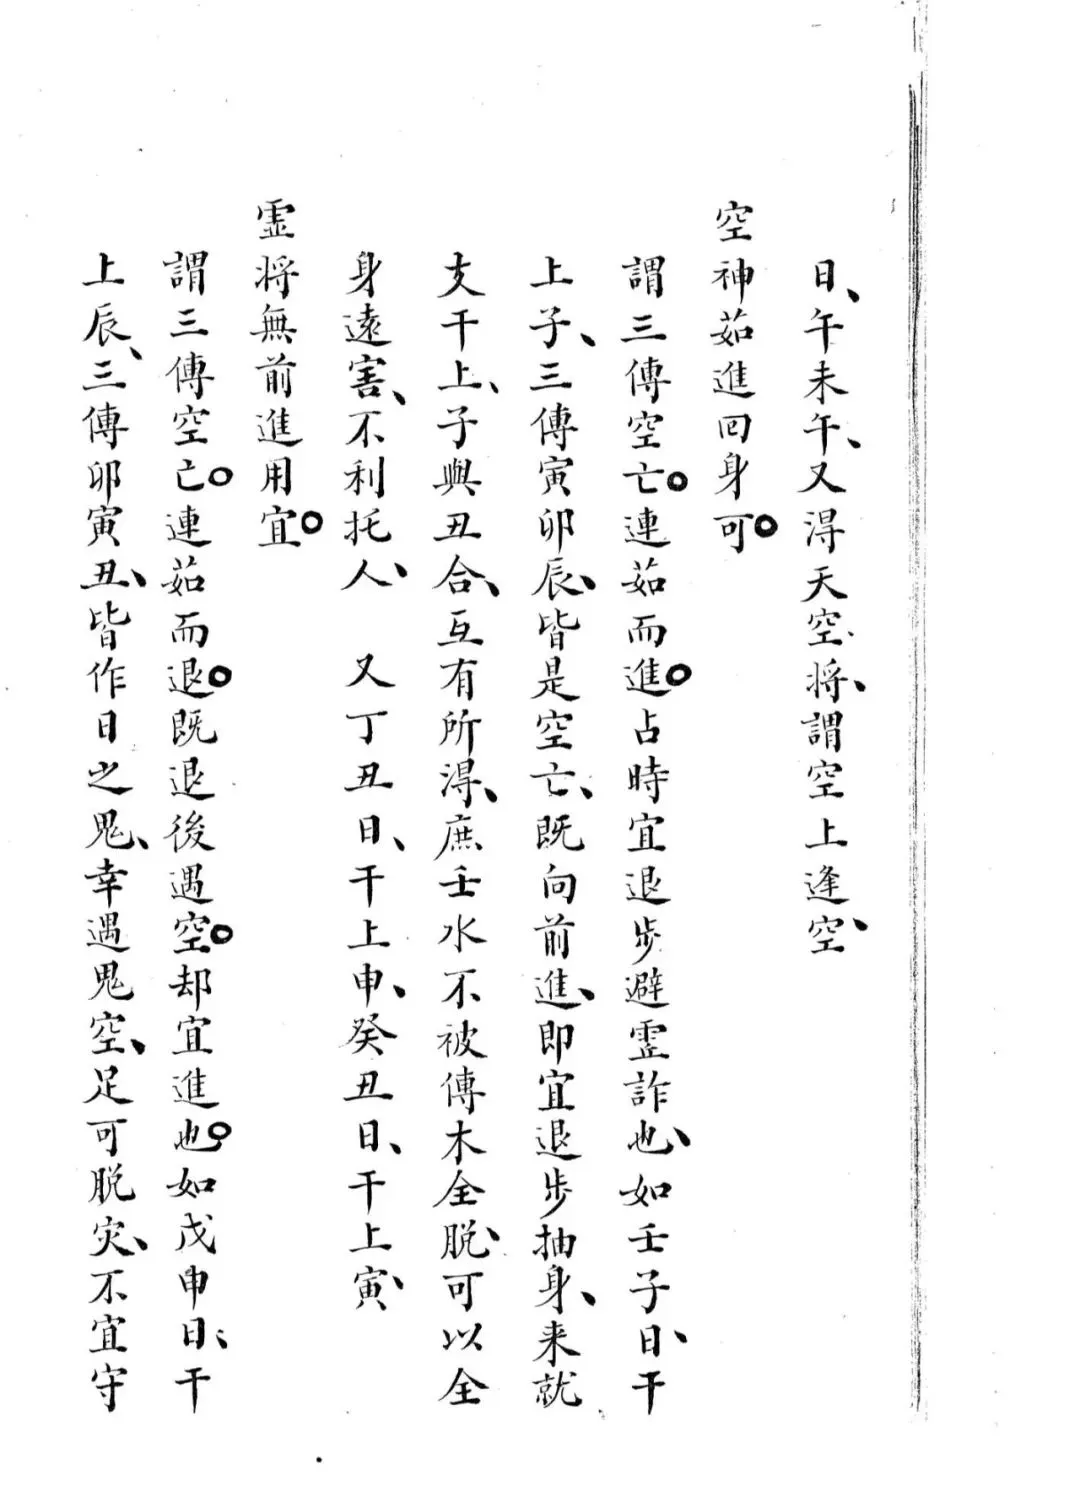 日、午未午、又淂天空、将、謂空上逢空、
空神茹進回身可。
謂三傳空亡。連茹而進。占時宜退步避霊詐也、如壬子日、干
上子、三傳寅卯辰、皆是空亡、既向前進、即宜退步抽身、来就
支干上、子與丑合、互有所淂、庶壬水不被傳木全脱、可以全
身遠害、不利托人、 又丁丑日、干上申、癸丑日、干上寅、
霊将無前進用宜。
謂三傳空亡。連茹而退。既退後遇空。却宜進也。如戊申日、干
上辰、三傳卯寅丑、皆作日之鬼、幸遇鬼空、足可脱灾、不宜守